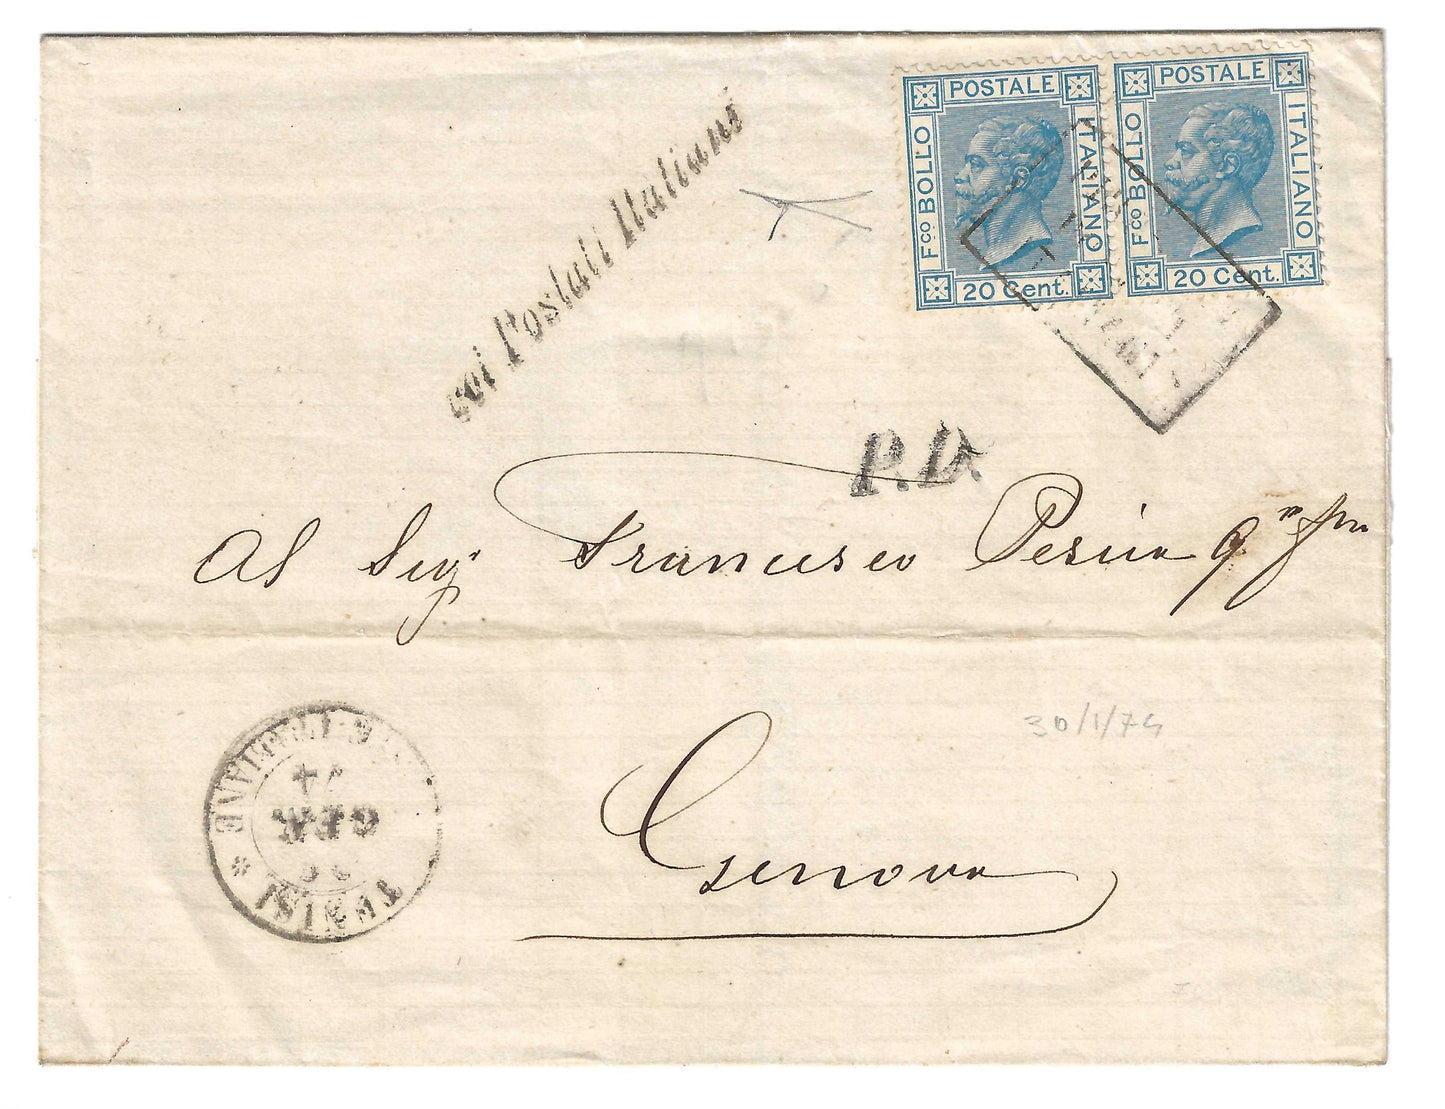 POSTALE
Fco BOLLO
ITALIANO
20 Cent.
POSTALE
Fco BOLLO
ITALIANO
20 Cent.
coi Postali Italiani
P.D.
Al Sigr Francesco Peria qm
Genova
30/1/74
TUNISI
GEN
74
ITALIANE